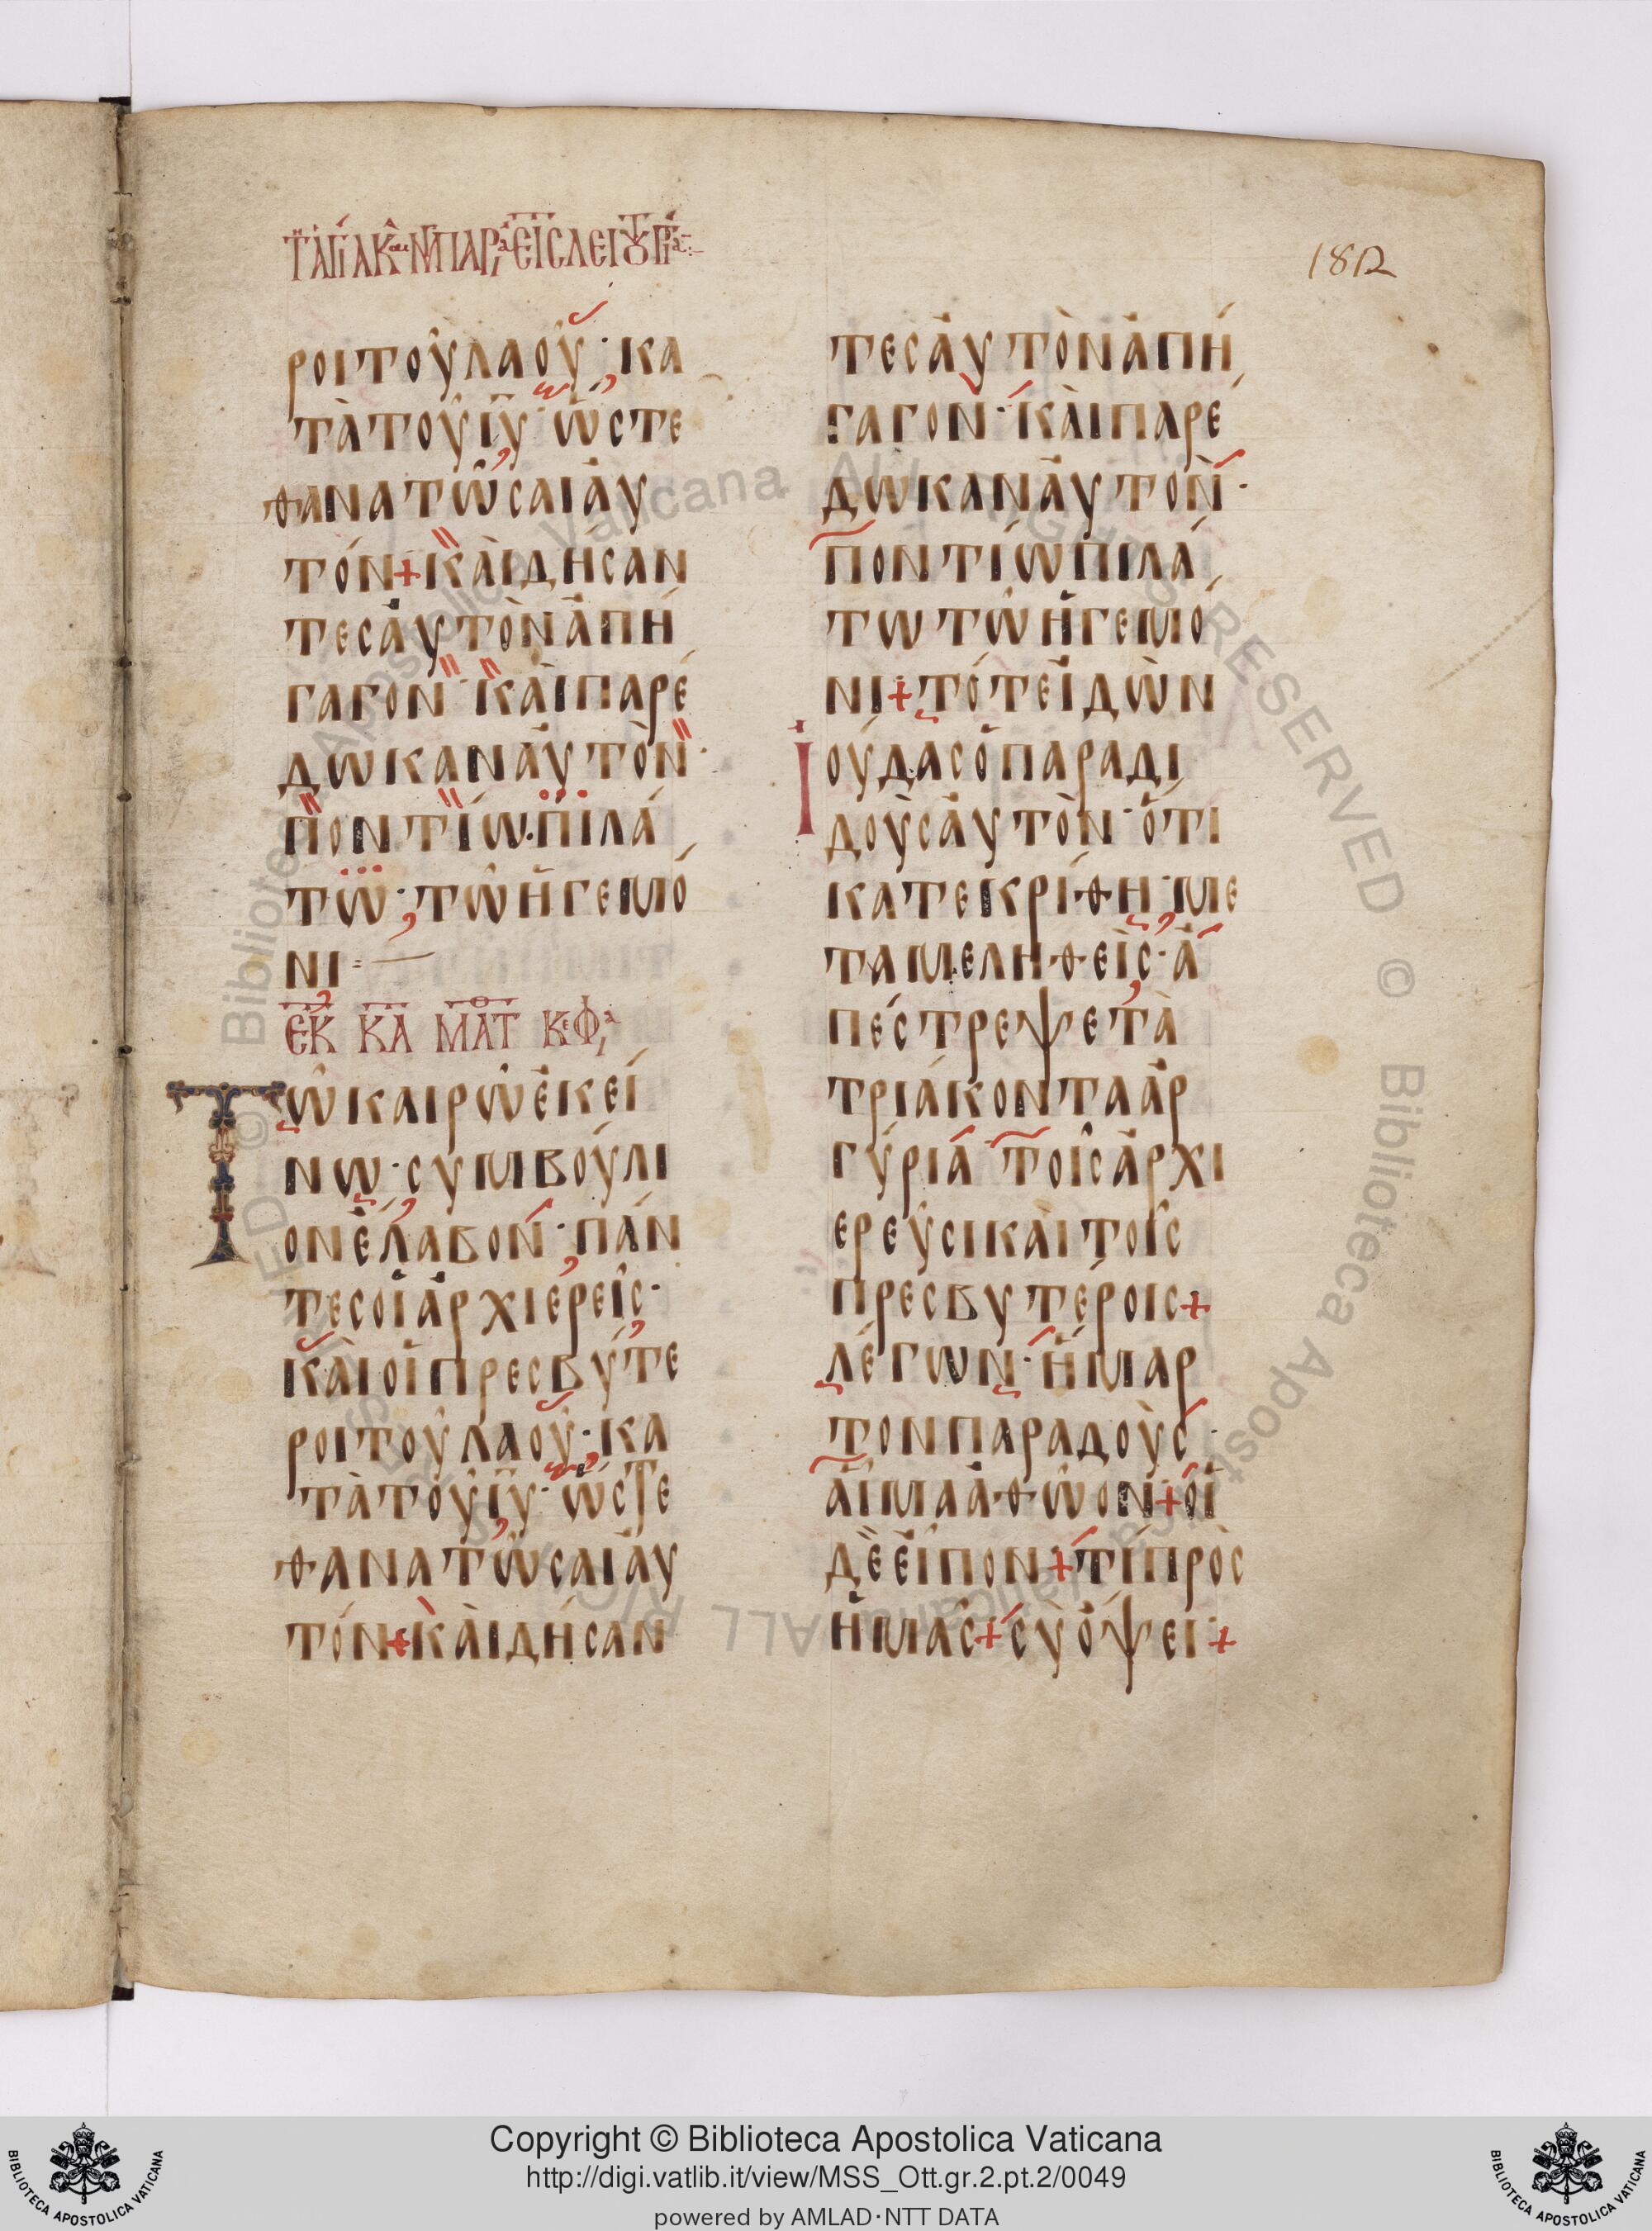 182
ροι τοῦ λαοῦ· κα
τὰ τοῦ ἰυ· ὥστε
θανατῶσαι ἀυ
τόν + κὰι δήσαν
τες ἀυτὸν ἀπή
γαγον· κὰι παρέ
δωκαν ἀυτὸν·
ποντίω. πιλά
τω· τῶ ἡγεμό
νι
ἐκ κα ματ κεφ
Τῶ καιρῶ ἐκεί
νω· συμβούλι
ον ἔλαβον· πάν
τες οἱ ἀρχιερεῖς·
κὰι οἱ πρεσβύτε
ροι τοῦ λαοῦ· κα
τὰ τοῦ ἰυ· ὥστε
θανατῶσαι ἀυ
τόν + κὰι δήσαν
τες ἀυτὸν ἀπή
γαγον· κὰι παρέ
δωκαν ἀυτὸν·
ποντίω πιλά
τω τῶ ἡγεμό
νι + τότε ἰδὼν
Ἰούδας ὁ παραδι
δοὺς ἀυτὸν· ὅτι
κατεκρίθη· με
ταμεληθεὶς· ἀ
πέστρεψε τὰ
τριάκοντα ἀρ
γύρια τοῖς ἀρχι
ερεῦσι κὰι τοῖς
πρεσβυτέροις +
λέγων· ἥμαρ
τον παραδοὺς·
αἷμα ἀθῶον + οἱ
δὲ εἶπον + τί πρὸς
ἡμᾶς + σὺ ὄψει +
Copyright © Biblioteca Apostolica Vaticana
http://digi.vatlib.it/view/MSS_Ott.gr.2.pt.2/0049
powered by AMLAD·NTT DATA
BIBLIOTECA APOSTOLICA VATICANA
BIBLIOTECA APOSTOLICA VATICANA